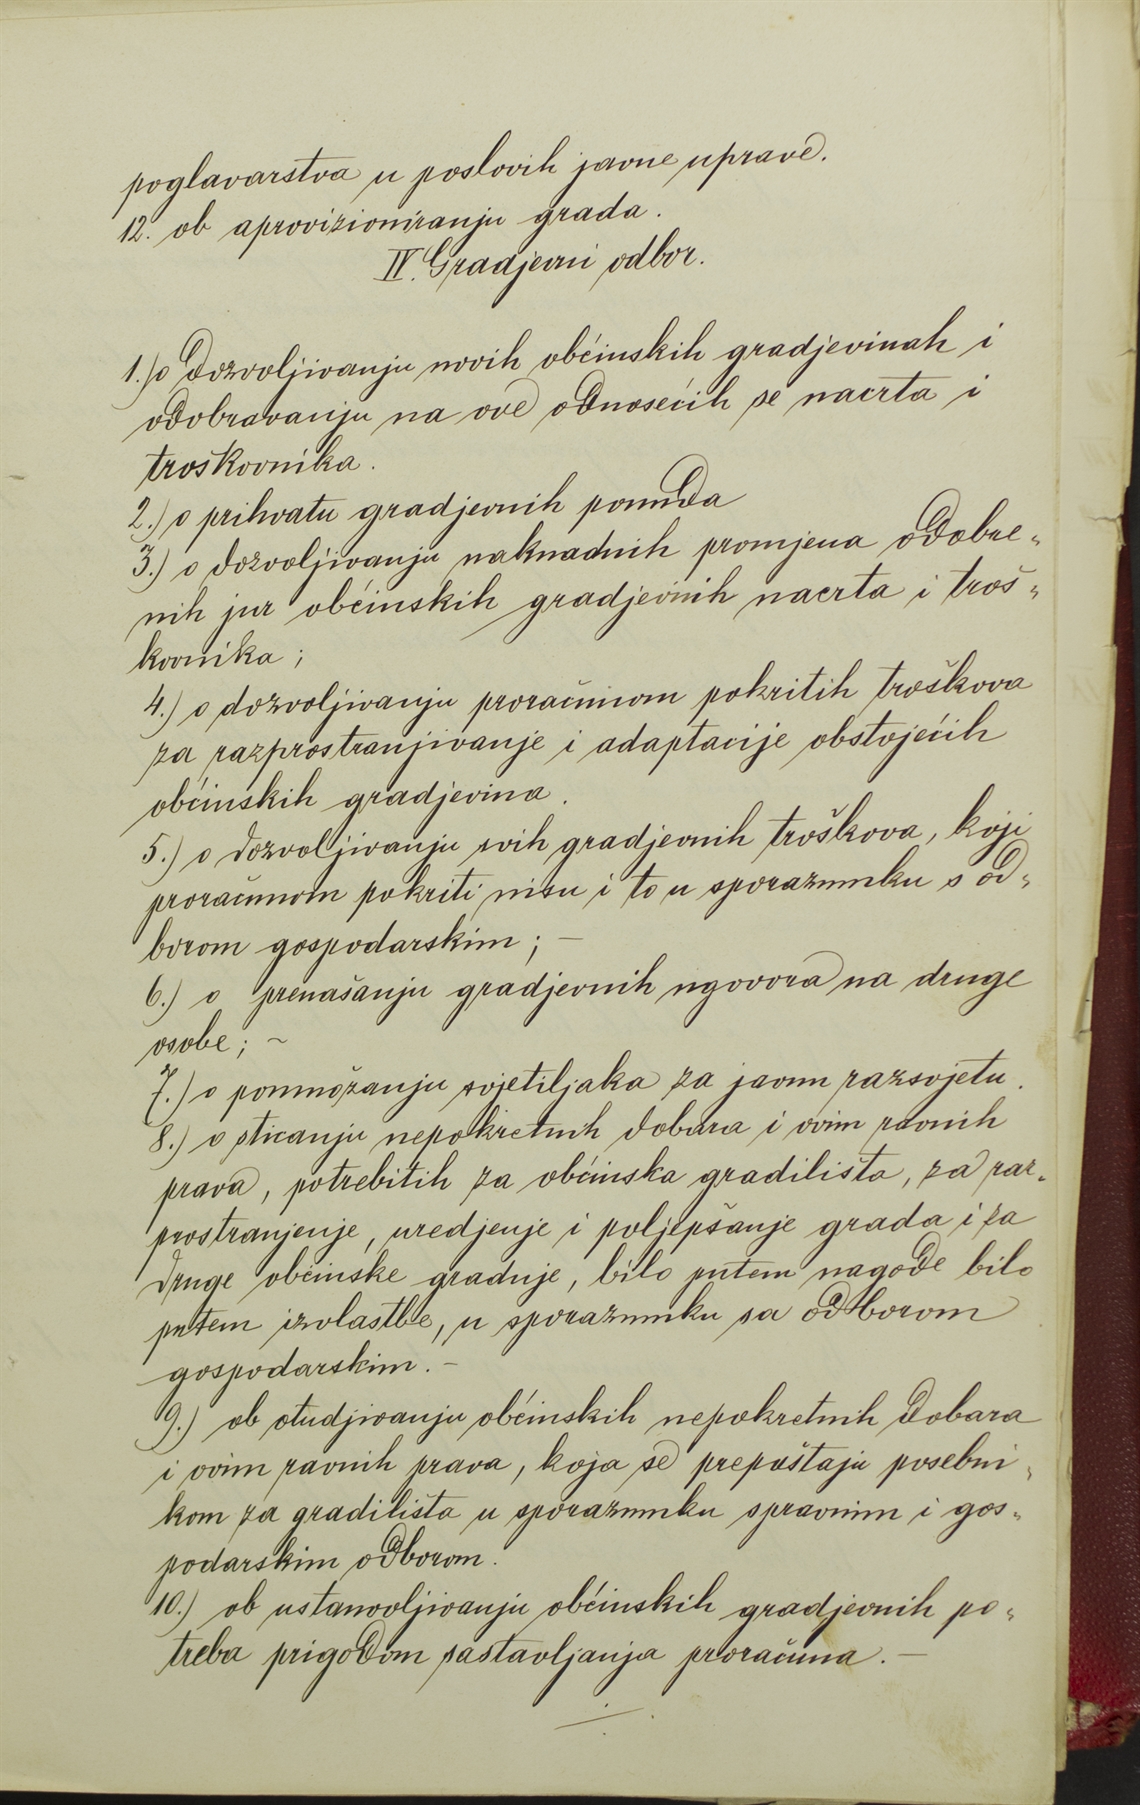 poglavarstva u poslovih javne uprave.
12. ob aprovizioniranju grada.
IV. Gradjevni odbor.
1.) o dozvoljivanju novih občinskih gradjevinah i
odobravanju na ove odnosećih se nacrta i
troškovnika.
2.) o prihvatu gradjevnih ponuda
3.) o dozvoljivanju naknadnih promjena odobre-
nih jur občinskih gradjevnih nacrta i troš-
kovnika;
4.) o dozvoljivanju proračunom pokritih troškova
za razprostranjivanje i adaptacije obstojećih
občinskih gradjevina.
5.) o dozvoljivanju svih gradjevnih troškova, koji
proračunom pokriti nisu i to u sporazumku s od-
borom gospodarskim; –
6.) o prenašanju gradjevnih ugovora na druge
osobe; ~
7.) o pomnožanju svjetiljaka za javnu razsvjetu.
8.) o sticanju nepokretnih dobara i ovim ravnih
prava, potrebitih za občinska gradilišta, za raz-
prostranjenje, uredjenje i poljepšanje grada i za
druge občinske gradnje, bilo putem nagode bilo
putem izvlastbe, u sporazumku sa odborom
gospodarskim. –
9.) ob otudjivanju občinskih nepokretnih dobara
i ovim ravnih prava, koja se prepuštaju posebni-
kom za gradilišta u sporazumku spravnim i gos-
podarskim odborom.
10.) ob ustanovljivanju občinskih gradjevnih po-
treba prigodom sastavljanja proračuna. –